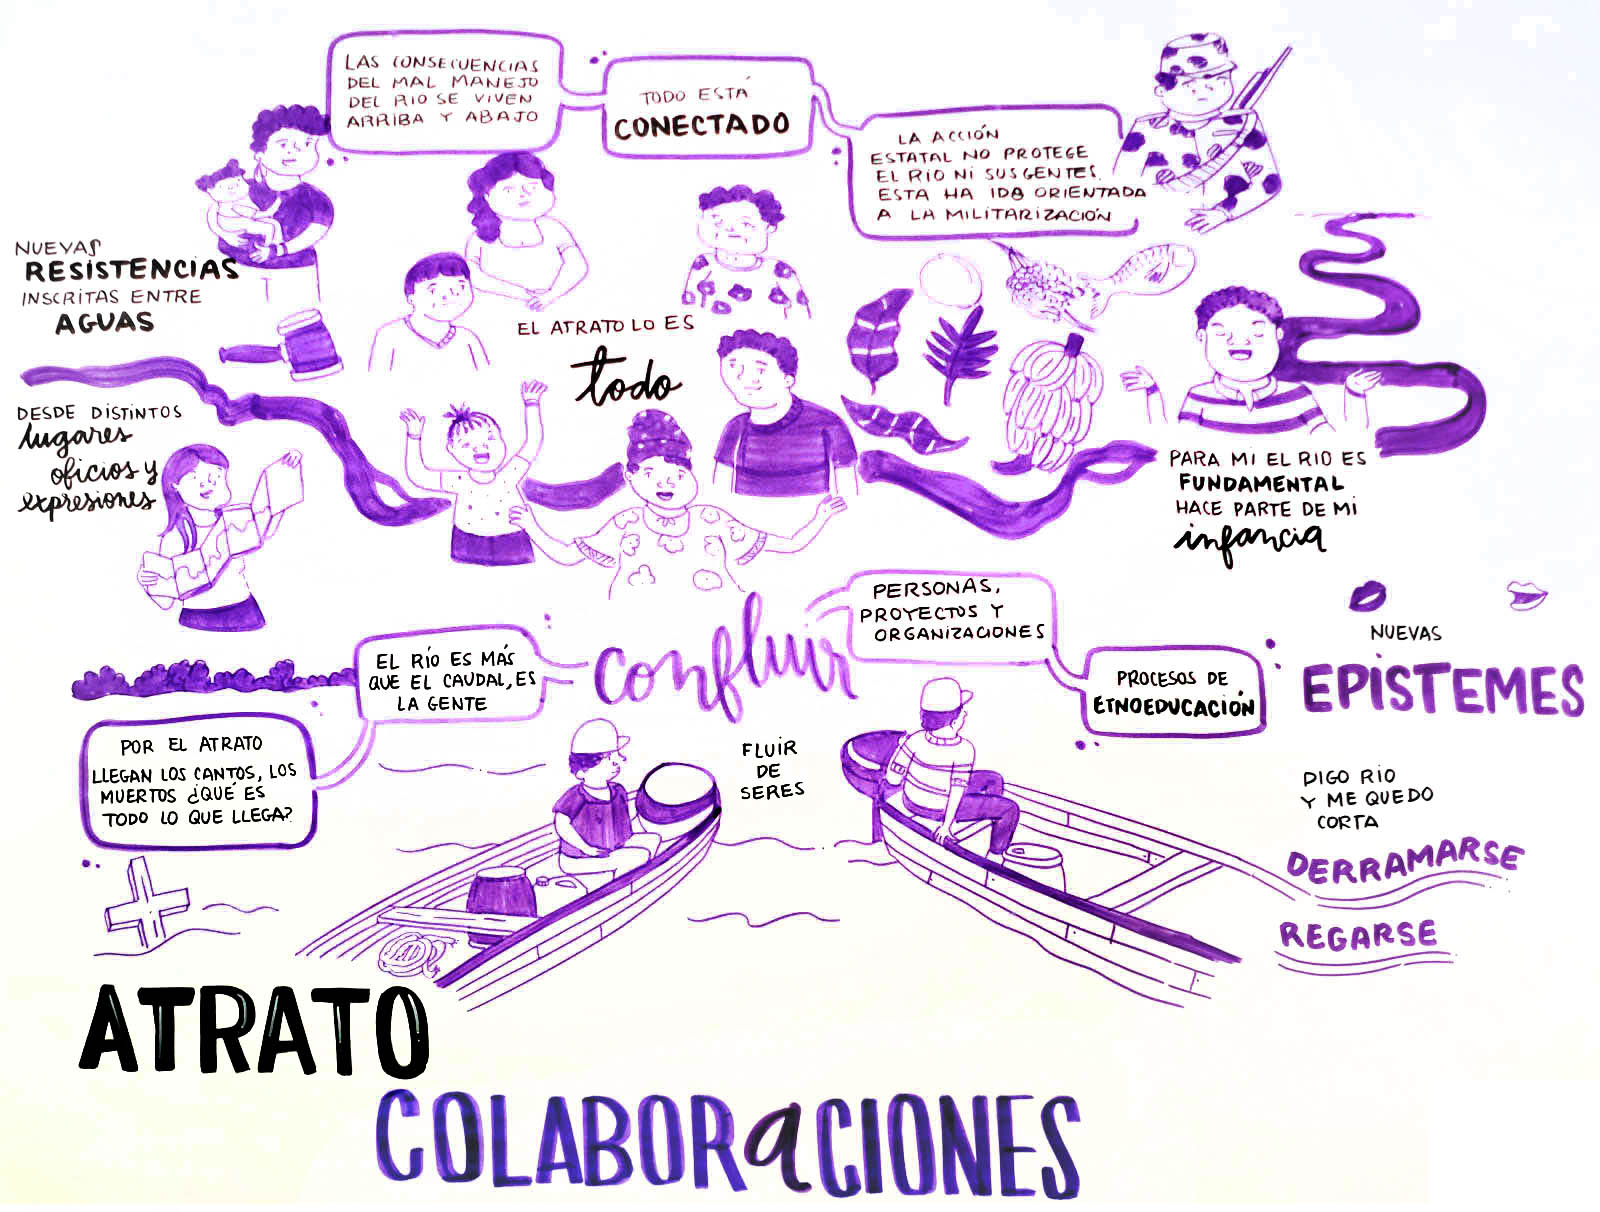 LAS CONSECUENCIAS
DEL MAL MANEJO
DEL RIO SE VIVEN
ARRIBA Y ABAJO
TODO ESTÁ
CONECTADO
LA ACCIÓN
ESTATAL NO PROTEGE
EL RIO NI SUS GENTES.
ESTA HA IDO ORIENTADA
A LA MILITARIZACIÓN
NUEVAS
RESISTENCIAS
INSCRITAS ENTRE
AGUAS
EL ATRATO LO ES
todo
DESDE DISTINTOS
lugares
oficios y
expresiones
PARA MI EL RIO ES
FUNDAMENTAL
HACE PARTE DE MI
infancia
EL RÍO ES MÁS
QUE EL CAUDAL, ES
LA GENTE
confluir
PERSONAS,
PROYECTOS Y
ORGANIZACIONES
PROCESOS DE
ETNOEDUCACIÓN
NUEVAS
EPISTEMES
POR EL ATRATO
LLEGAN LOS CANTOS, LOS
MUERTOS ¿QUÉ ES
TODO LO QUE LLEGA?
FLUIR
DE
SERES
DIGO RIO
Y ME QUEDO
CORTA
DERRAMARSE
REGARSE
ATRATO
COLABORaCIONES